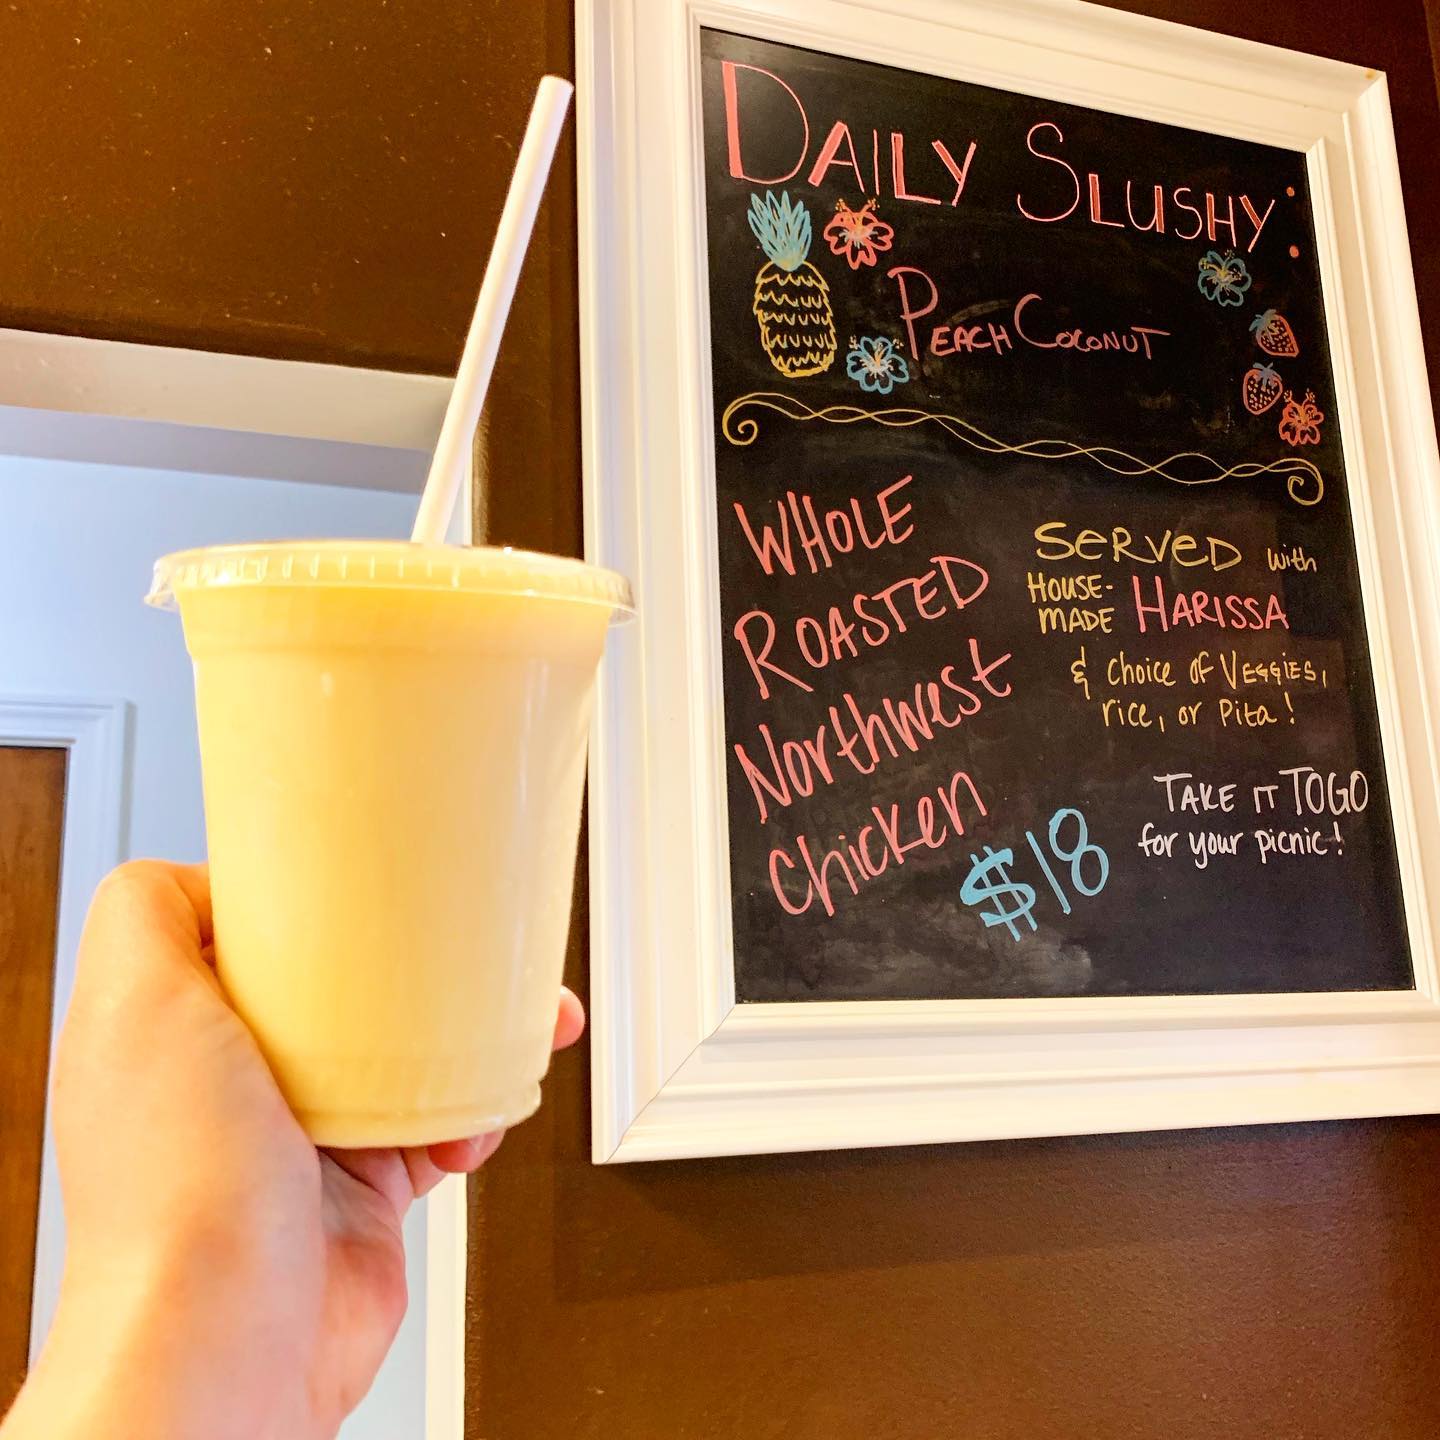 DAILY SLUSHY:
PEACH COCONUT
WHOLE
ROASTED
Northwest
Chicken
$18
SERVED with
HOUSE-
MADE HARISSA
& choice of VEGGIES,
rice, or Pita!
TAKE IT TOGO
for your picnic!